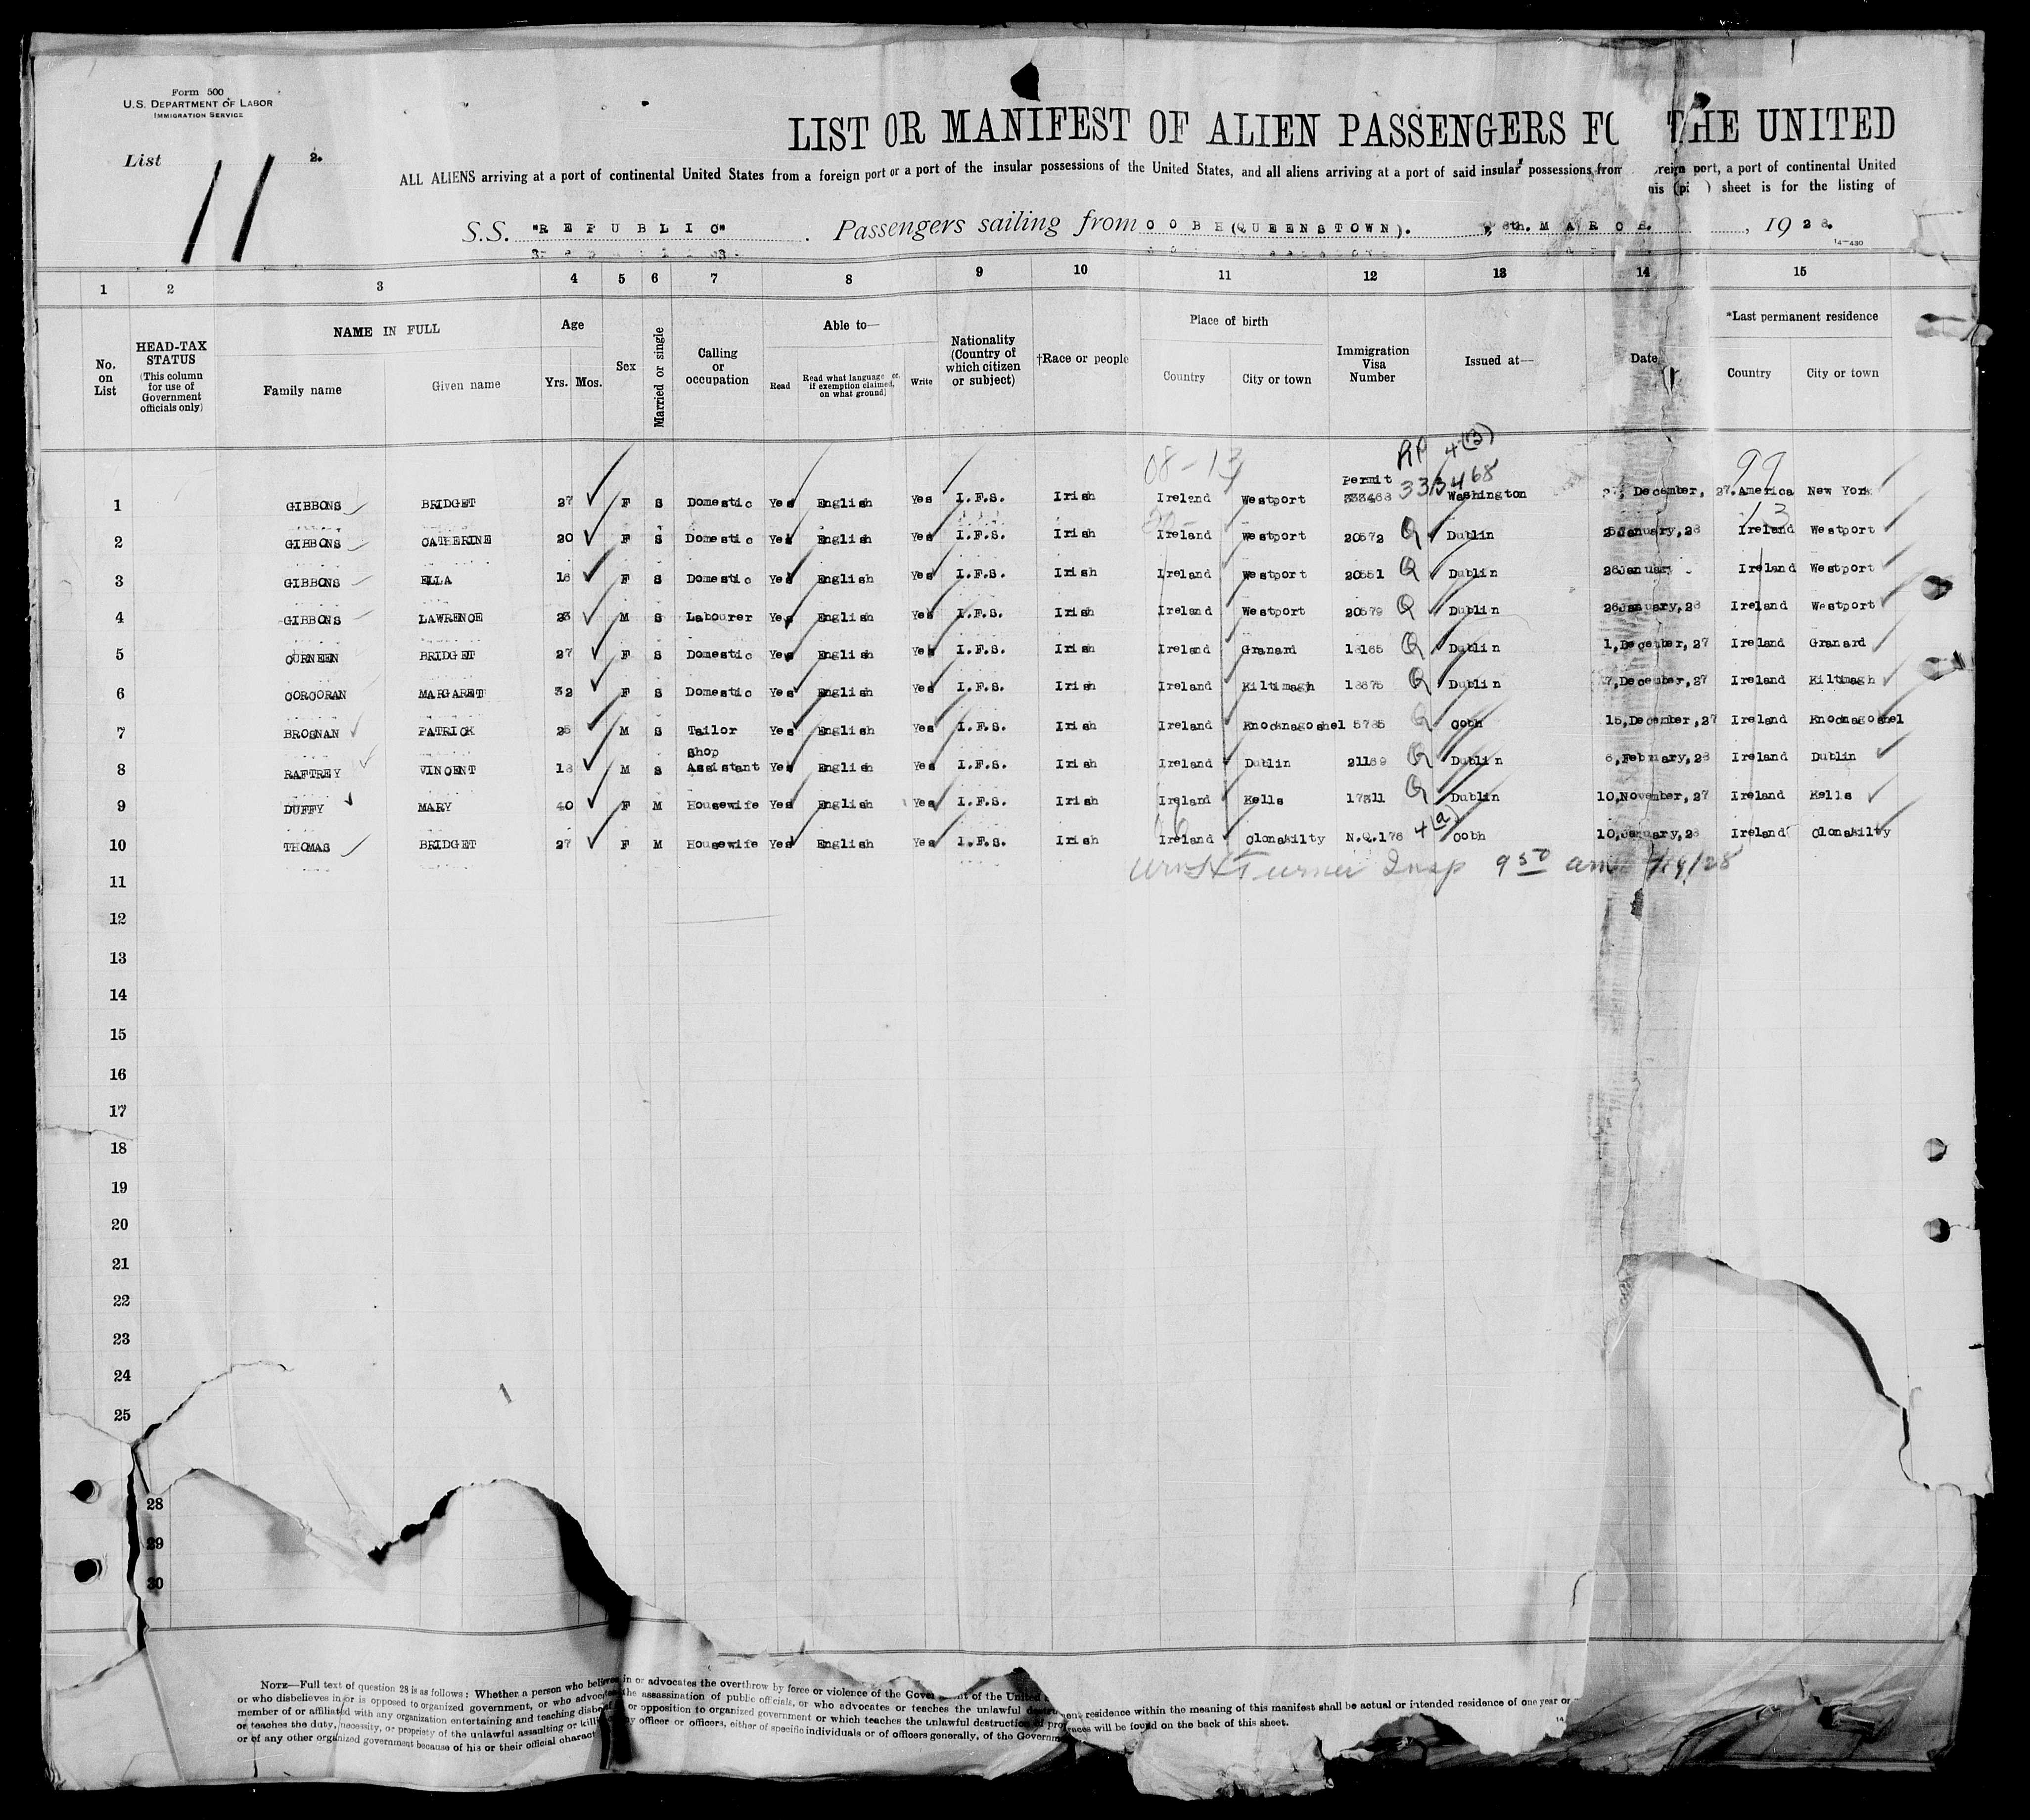 Form 500
U.S. DEPARTMENT OF LABOR
IMMIGRATION SERVICE
List 11 2.
LIST OR MANIFEST OF ALIEN PASSENGERS FO THE UNITED
ALL ALIENS arriving at a port of continental United States from a foreign port or a port of the insular possessions of the United States, and all aliens arriving at a port of said insular possessions from reign port, a port of continental United
sheet is for the listing of
S.S. "REPUBLIC" . Passengers sailing from COBH (QUEENSTOWN). 8th. MARCH. , 1928.
14-430
1 2 3 4 5 6 7 8 9 10 11 12 13 14 15
No. on List
HEAD-TAX STATUS (This column for use of Government officials only)
NAME IN FULL
Family name Given name
Age
Yrs. Mos.
Sex
Married or single
Calling or occupation
Able to—
Read Read what language or, if exemption claimed, on what ground Write
Nationality (Country of which citizen or subject)
†Race or people
Place of birth
Country City or town
Immigration Visa Number
Issued at—
Date
*Last permanent residence
Country City or town
RP 4(B)
08-13
99
Permit 333468
1 GIBBONS BRIDGET 27 F S Domestic Yes English Yes I.F.S. Irish Ireland Westport 333468 Washington December, 27. America New York
13
2 GIBBONS CATHERINE 20 F S Domestic Yes English Yes I.F.S. Irish Ireland Westport 20572 Q Dublin January, 28 Ireland Westport
3 GIBBONS ELLA 18 F S Domestic Yes English Yes I.F.S. Irish Ireland Westport 20551 Q Dublin 26 January Ireland Westport
4 GIBBONS LAWRENCE 23 M S Labourer Yes English Yes I.F.S. Irish Ireland Westport 20579 Q Dublin 26 January, 28 Ireland Westport
5 CURNEEN BRIDGET 27 F S Domestic Yes English Yes I.F.S. Irish Ireland Granard 18165 Q Dublin 1, December, 27 Ireland Granard
6 CORCORAN MARGARET 32 F S Domestic Yes English Yes I.F.S. Irish Ireland Kiltimagh 18675 Q Dublin 7, December, 27 Ireland Kiltimagh
7 BROSNAN PATRICK 25 M S Tailor Yes English Yes I.F.S. Irish Ireland Knocknagoshel 5785 Q Cobh 15, December, 27 Ireland Knocknagoshel
8 RAFTREY VINCENT 18 M S Shop Assistant Yes English Yes I.F.S. Irish Ireland Dublin 21189 Q Dublin 6, February, 28 Ireland Dublin
9 DUFFY MARY 40 F M Housewife Yes English Yes I.F.S. Irish Ireland Kells 17311 Q Dublin 10, November, 27 Ireland Kells
10 THOMAS BRIDGET 27 F M Housewife Yes English Yes I.F.S. Irish Ireland Clonakilty N.Q.176 4(a) Cobh 10, January, 28 Ireland Clonakilty
11 Turner Insp 9 50 am /19/28
12
13
14
15
16
17
18
19
20
21
22
23
24
25
28
29
30
NOTE—Full text of question 28 is as follows: Whether a person who believes in or advocates the overthrow by force or violence of the Gover nt of the United
or who disbelieves in or is opposed to organized government, or who advocates the assassination of public officials, or who advocates or teaches the unlawful destru
member of or affiliated with any organization entertaining and teaching disbe or opposition to organized government or which teaches the unlawful destruction of pro
or teaches the duty, necessity, or propriety of the unlawful assaulting or killi ny officer or officers, either of specific individuals or of officers generally, of the Governm
or of any other organized government because of his or their official charact
residence within the meaning of this manifest shall be actual or intended residence of one year or
races will be found on the back of this sheet.